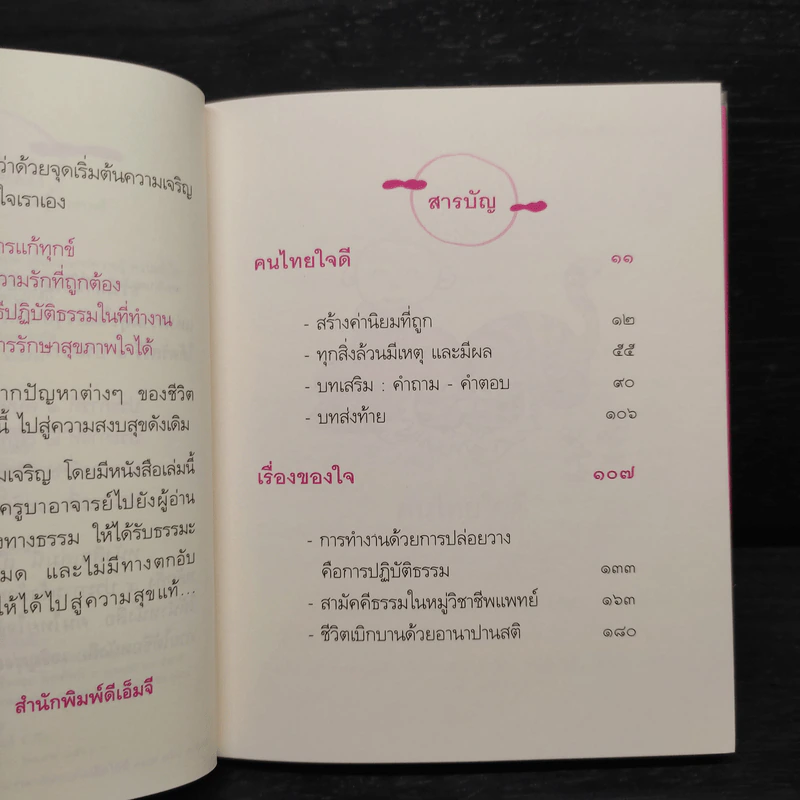 ว่าด้วยจุดเริ่มต้นความเจริญ
ใจเราเอง
ารแก้ทุกข์
วามรักที่ถูกต้อง
ธีปฏิบัติธรรมในที่ทำงาน
ารรักษาสุขภาพใจได้
ากปัญหาต่างๆ ของชีวิต
นี้ ไปสู่ความสงบสุขดังเดิม
มเจริญ โดยมีหนังสือเล่มนี้
ครูบาอาจารย์ไปยังผู้อ่าน
งทางธรรม ให้ได้รับธรรมะ
มด และไม่มีทางตกอับ
ให้ได้ไปสู่ความสุขแท้...
สำนักพิมพ์ดีเอ็มจี
สารบัญ
คนไทยใจดี ๑๑
- สร้างค่านิยมที่ถูก ๑๒
- ทุกสิ่งล้วนมีเหตุ และมีผล ๕๕
- บทเสริม : คำถาม - คำตอบ ๙๐
- บทส่งท้าย ๑๐๖
เรื่องของใจ ๑๐๗
- การทำงานด้วยการปล่อยวาง
คือการปฏิบัติธรรม ๑๓๓
- สามัคคีธรรมในหมู่วิชาชีพแพทย์ ๑๖๓
- ชีวิตเบิกบานด้วยอานาปานสติ ๑๘๐